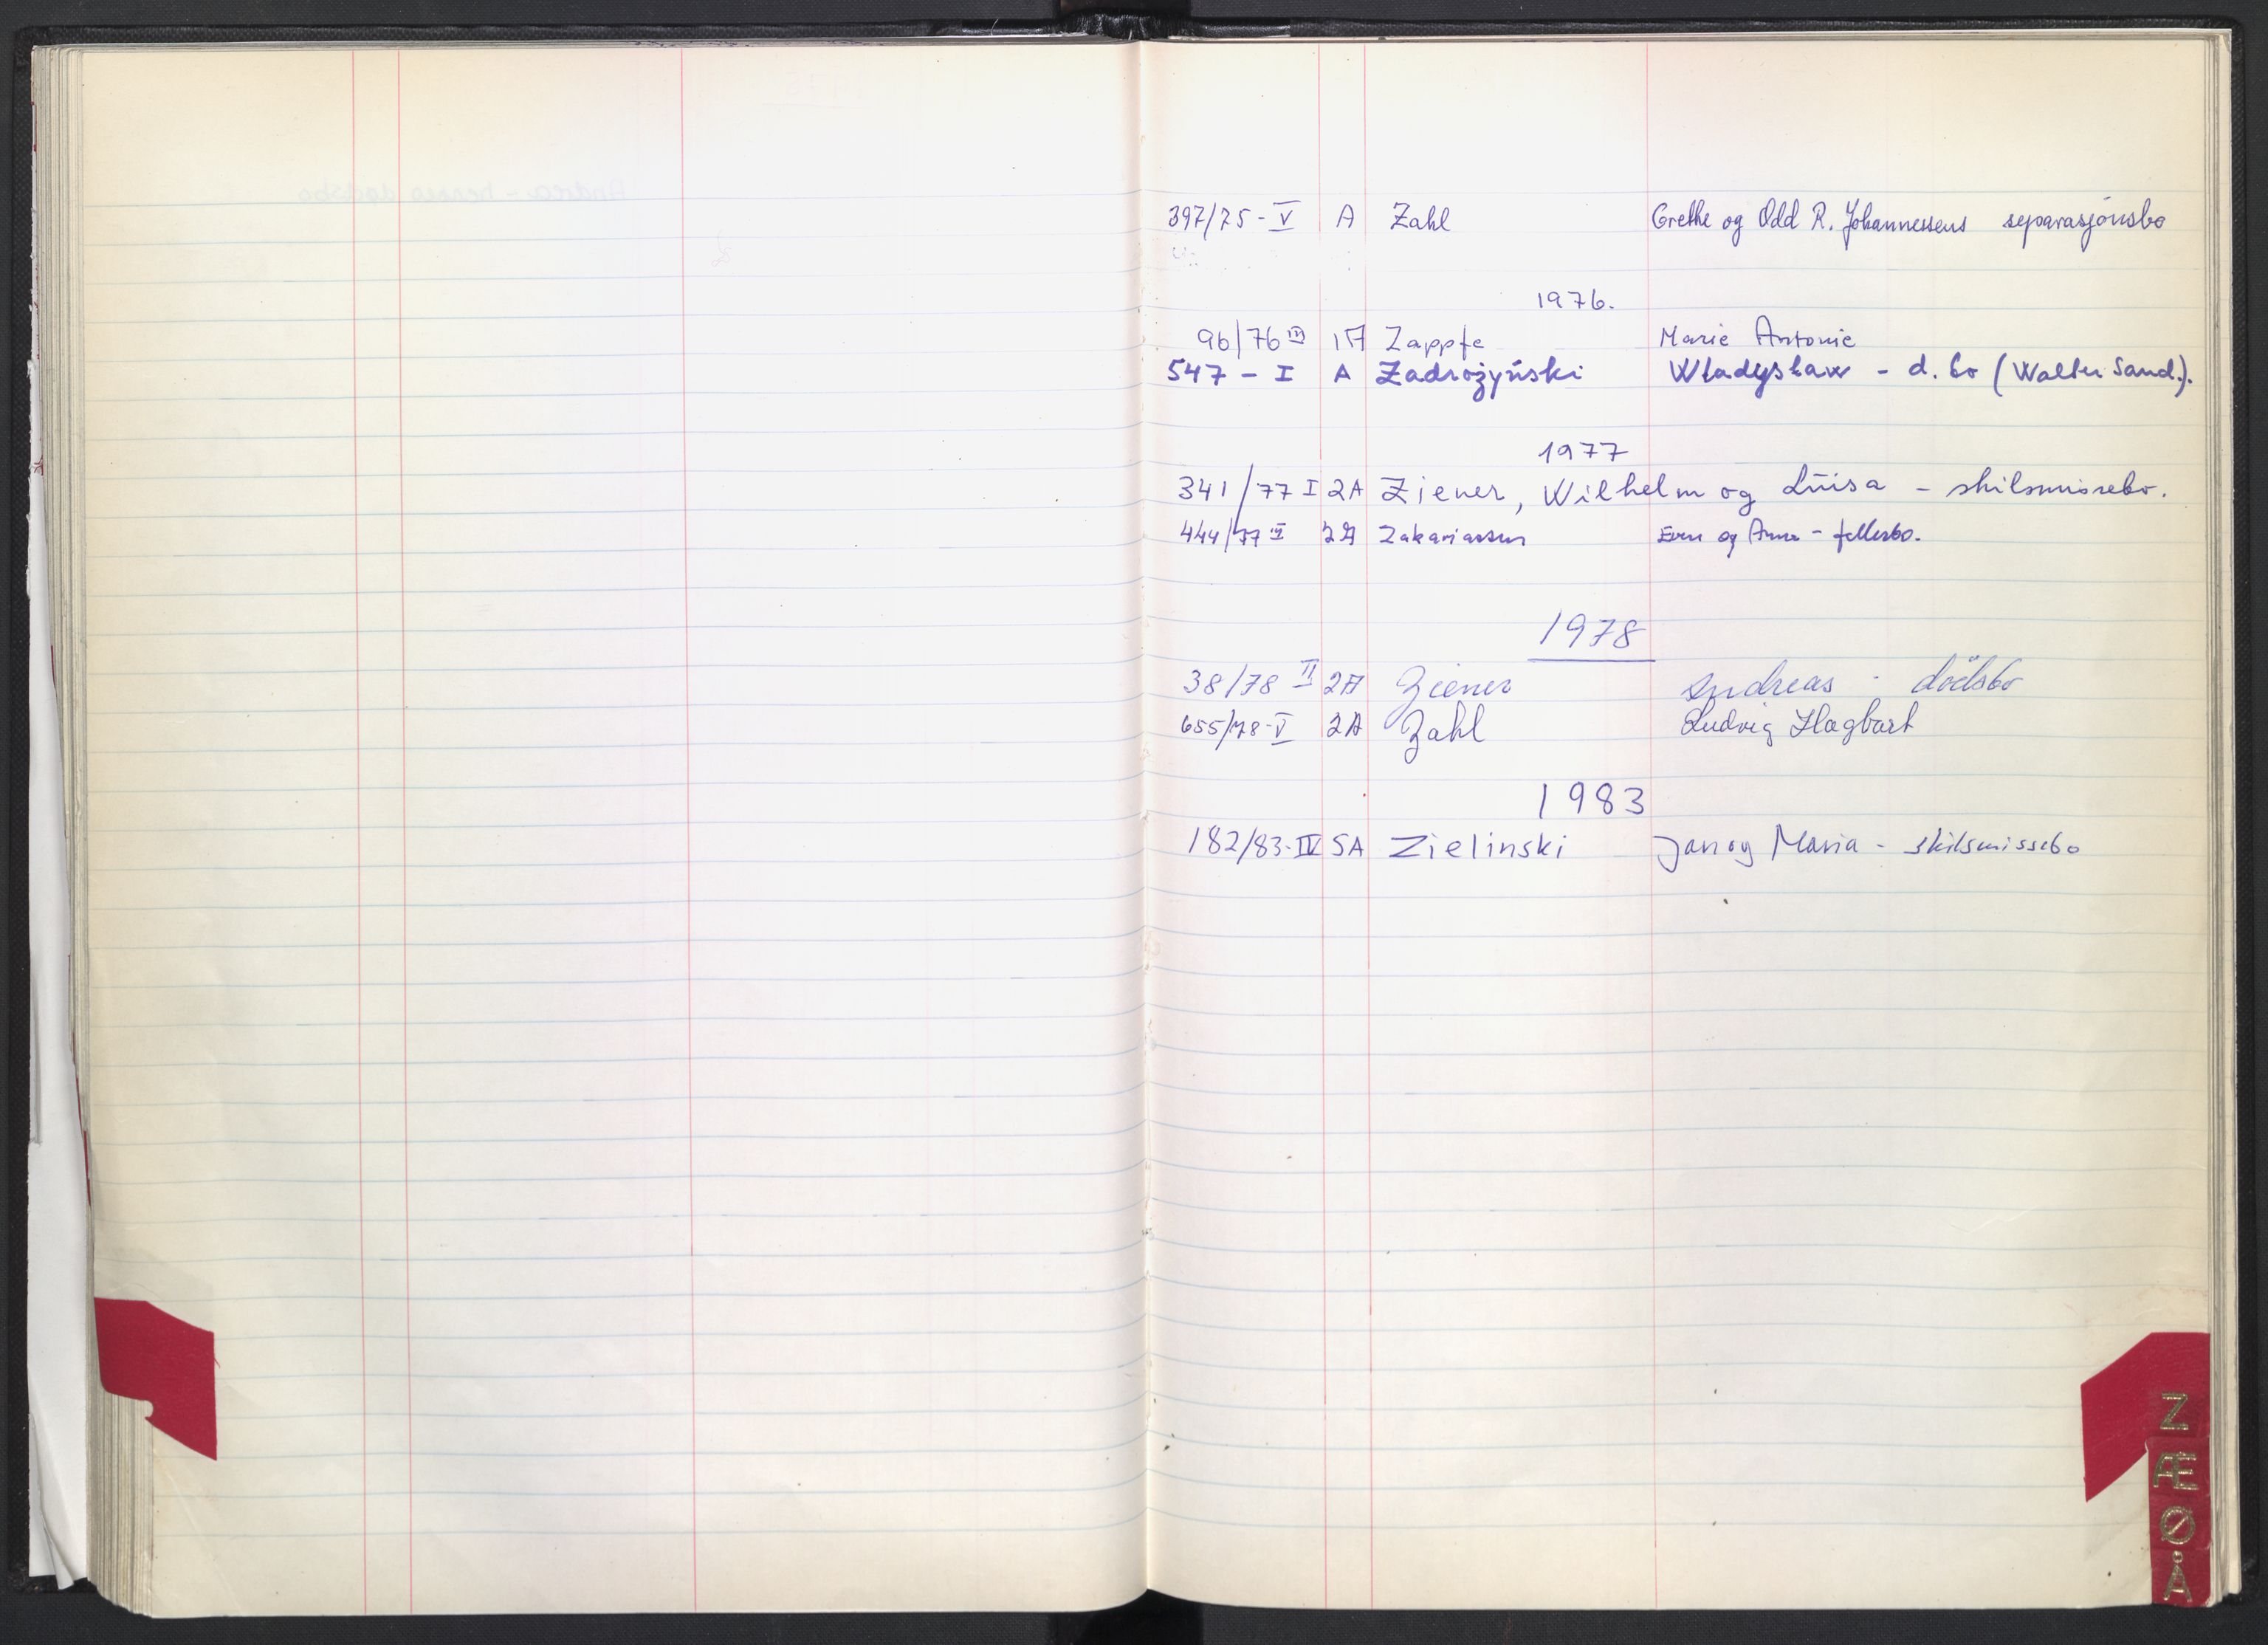 397/75 - V A Zahl Grethe og Odd R. Johannessens separasjonsbo
1976.
96/76 III 1A Zappfe Marie Antonie
547 - I A Zadrożyński Władysław - d. bo (Walter Sand.).
1977
341/77 I 2A Ziener, Wilhelm og Luisa - skilsmissebo.
444/77 2A Zakariassen Even og Anna - fellesbo.
1978
38/78 II 2A Ziener Andreas - dödsbo
655/78-V 2A Zahl Ludvig Hagbart
1983
182/83-IV 5A Zielinski Jan og Maria - skilsmissebo
Z
Æ
Ø
Å